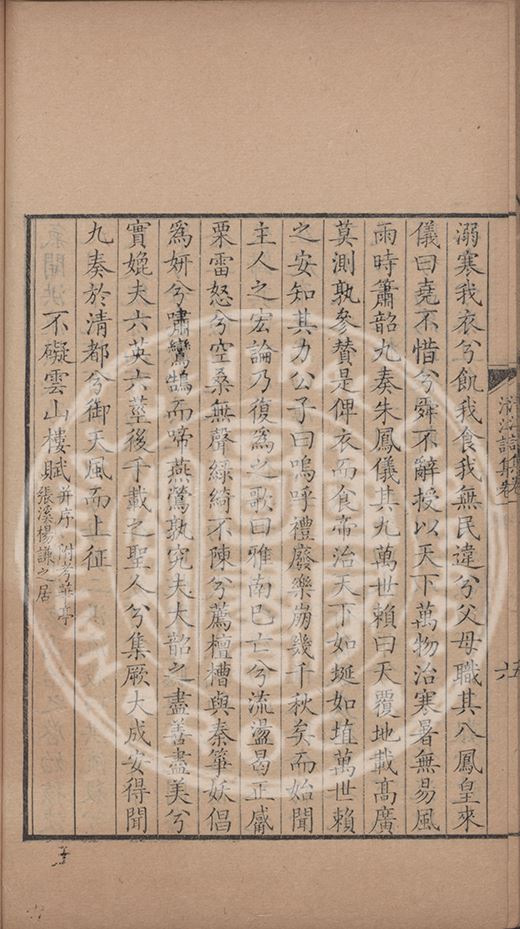 溺寒我衣兮飢我食我無民違兮父母職其八鳳皇來
儀曰堯不惜兮舜不辭授以天下萬物治寒暑無易風
雨時簫韶九奏朱鳳儀其九萬世賴曰天覆地載高廣
莫測孰參賛是俾衣而食帝治天下如埏如埴萬世賴
之安知其力公子曰嗚呼禮廢樂崩幾千秋矣而始聞
主人之宏論乃復爲之歌曰雅南巳亡兮流盪曷正鼖
栗雷怒兮空桑無聲緑綺不陳兮薦檀槽與秦箏妖倡
爲妍兮嘯鸞鵠而啼燕鶯孰究夫大韶之盡善盡美兮
實媲夫六英六莖後千載之聖人兮集厥大成安得聞
九奏於清都兮御天風而上征
不礙雲山樓賦并序 附芳華亭
張溪楊謙之居
詩集卷一
六